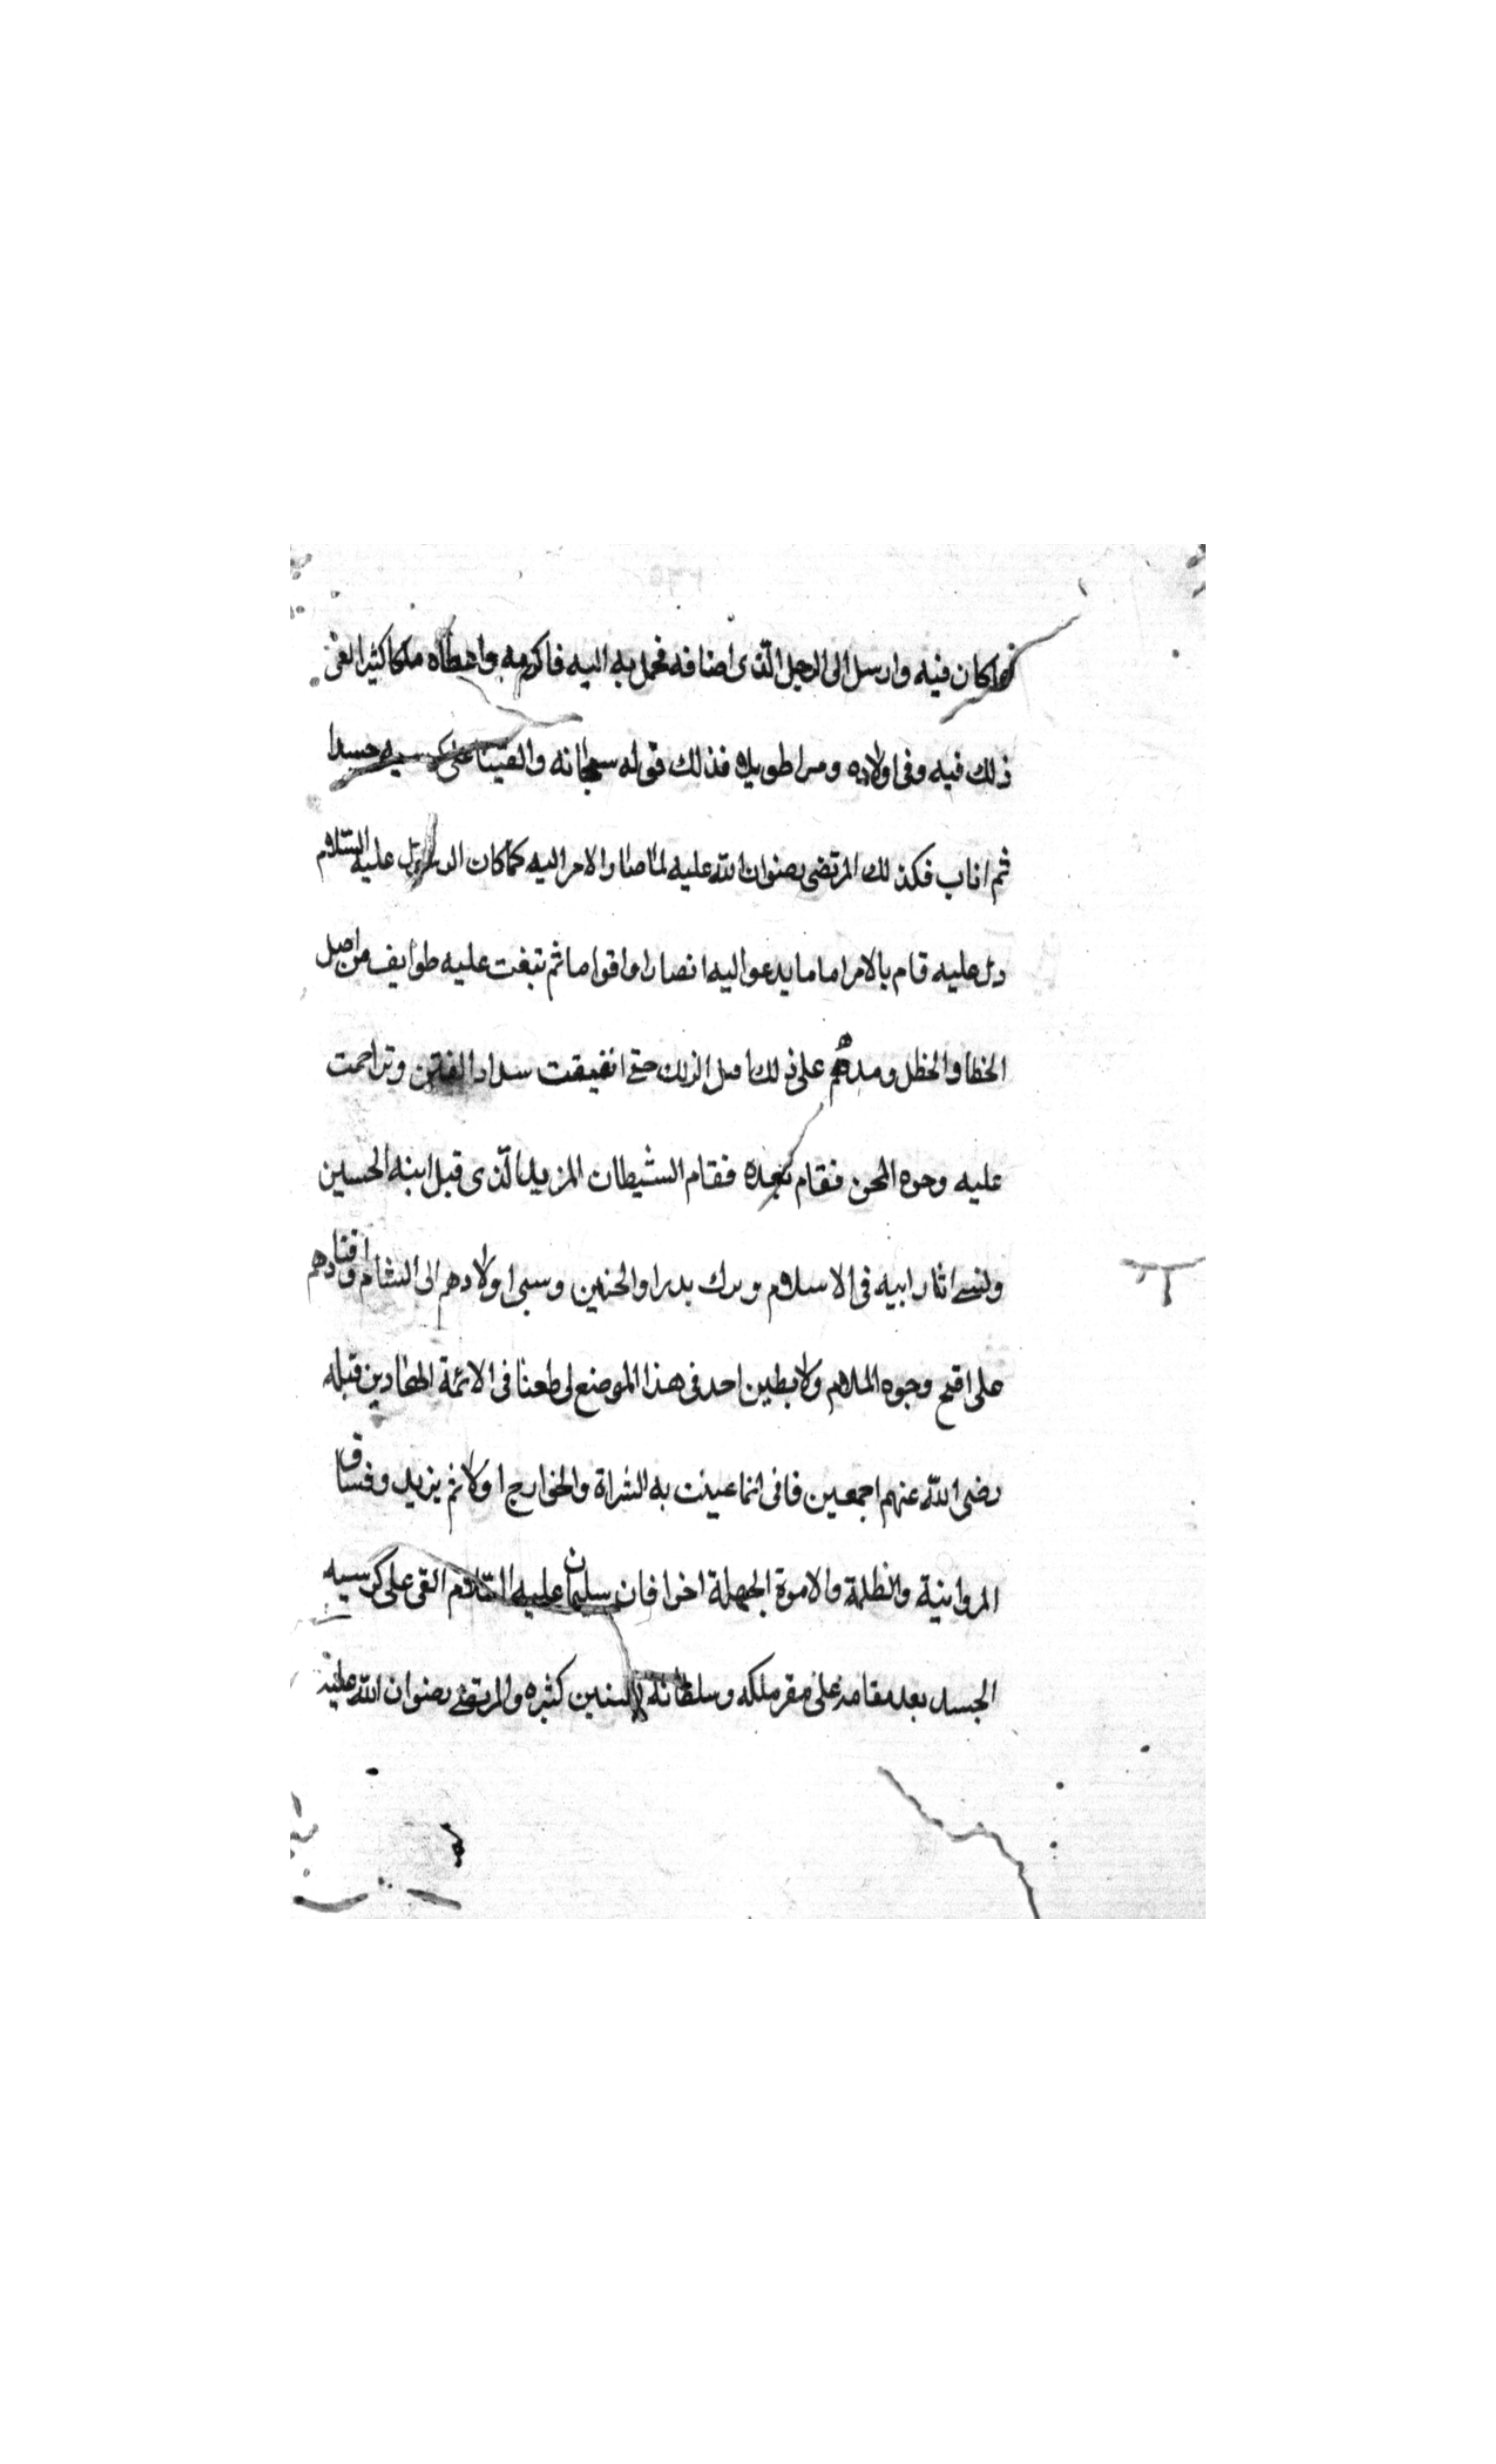 مما كان فيه وارسل الى الرجل الّذى اضافه فحمل به اليه فاكرمه واعطاه ملكا كثيرا بقى
ذلك فيه وفى اولاده دهرا طويلا فذلك قوله سبحانه والقينا على كرسيه جسدا
ثم اناب فكذلك المرتضى رضوان الله عليه لما صار الامر اليه كما كان الرسول عليه السّلام
دل عليه قام بالامر اماما يدعوا اليه انصارا واقواما ثم تبغت عليه طوايف من اهل
الخطا والخطل ومدهم على ذلك اهل الزلل حتى انفيقت سداد الفتن وتراحمت
عليه وجوه المحن فقام بعده فقام الشيطان المزيد الّذى قبل ابنه الحسين
ونسى اثار ابيه فى الاسلام وترك بدرا والحنين وسبى اولادهم الى الشام واقتادهم
على اقبح وجوه الملام ولا يظنن احد فى هذا الموضع لى طعنا فى الائمّة الهادين قبله
رضى اللّه عنهم اجمعين فانى انما عنيت به الشراة والخوارج اولا ثم يزيد وفساق
المروانية والظلمة والاموة الجهلة اخرا فان سليمان عليه السّلام القى على كرسيه
الجسد بعد مقامه على مقر ملكه وسلطانه لسنين كثيره والمرتضى رضوان اللّه عليه